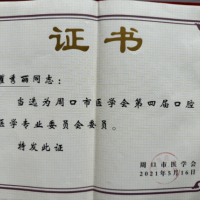 证书
秀丽同志：
当选为周口市医学会第四届口腔
医学专业委员会委员。
特发此证
周口市医学会
2021年5月16日